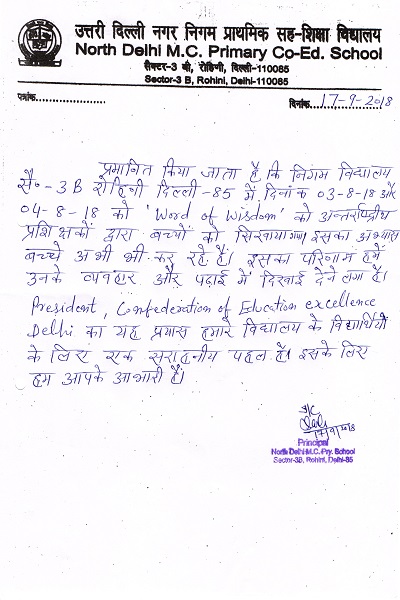 उत्तरी दिल्ली नगर निगम प्राथमिक सह-शिक्षा विद्यालय
North Delhi M.C. Primary Co-Ed. School
सैक्टर-3 बी, रोहिणी, दिल्ली-110085
Sector-3 B, Rohini, Delhi-110085
पत्रांक.....................
दिनांक. 17-9-2018
प्रमाणित किया जाता है कि निगम विद्यालय
सै०-3B रोहिनी दिल्ली-85 में दिनांक 03-8-18 और
04-8-18 को 'Word of Wisdom' को अन्तर्राष्ट्रीय
प्रशिक्षकों द्वारा बच्चों को सिखाया गया। इसका अभ्यास
बच्चे अभी भी कर रहे हैं। इसका परिणाम हमें
उनके व्यवहार और पढ़ाई में दिखाई देने लगा है।
President, Confederation of Education excellence
Delhi का यह प्रयास हमारे विद्यालय के विद्यार्थियों
के लिए एक सराहनीय पहल है। इसके लिए
हम आपके आभारी है।
I/C
17/9/2018
Principal
North Delhi M.C. Pry. School
Sector-3B, Rohini, Delhi-85